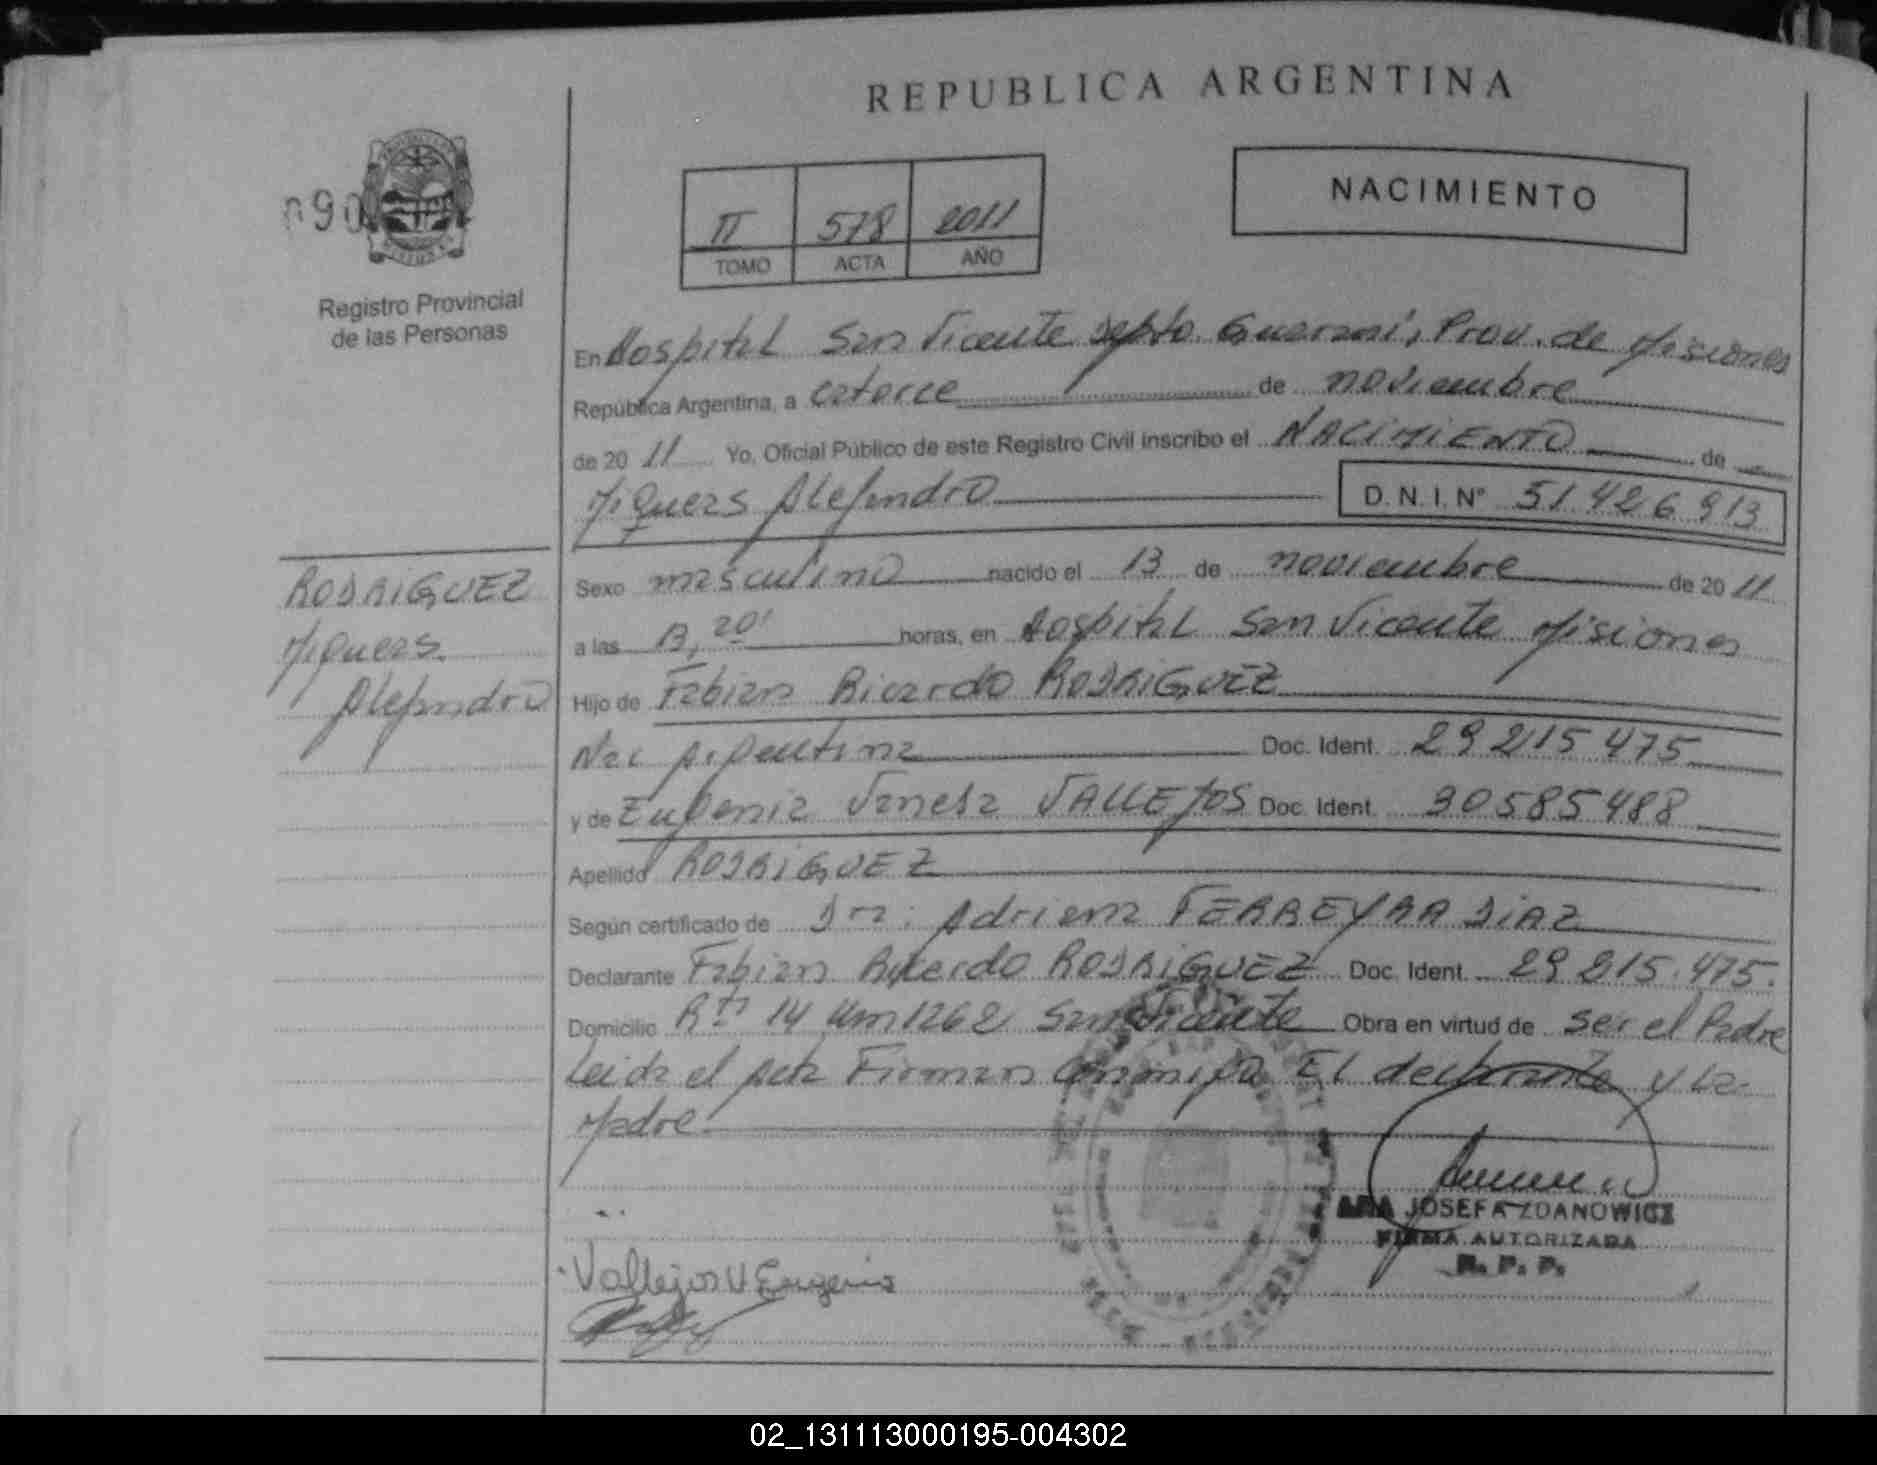 REPUBLICA ARGENTINA
090
Registro Provincial
de las Personas
II 578 2011
TOMO ACTA AÑO
NACIMIENTO
En Hospital San Vicente Depto. Guaraní, Prov. de Misiones
República Argentina, a catorce de noviembre
de 2011 Yo, Oficial Público de este Registro Civil inscribo el NACIMIENTO de
Miqueas Alejandro D.N.I. Nº 51.426.913
RODRIGUEZ
Miqueas
Alejandro
Sexo masculino nacido el 13 de noviembre de 2011
a las 13,20' horas, en Hospital San Vicente Misiones
Hijo de Fabian Ricardo RODRIGUEZ
Nac Argentina Doc. Ident. 29.215.475
y de Eugenia Vanesa VALLEJOS Doc. Ident. 30585488
Apellido RODRIGUEZ
Según certificado de Dra. Adriana FERREYRA DIAZ
Declarante Fabian Ricardo RODRIGUEZ Doc. Ident. 29.215.475.
Domicilio Rta 14 Km 1262 San Vicente Obra en virtud de ser el Padre
Leida el Acta Firman Conmigo El declarante y la
Madre.
ANA JOSEFA ZDANOWICZ
FIRMA AUTORIZADA
R. P. P.
Vallejos V Eugenia
02_131113000195-004302